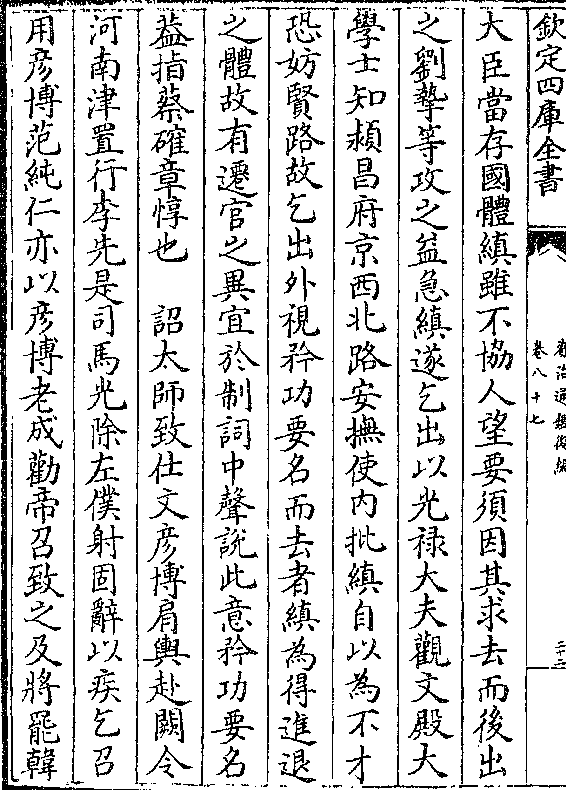 欽定四庫全書
資治通鑑後編
卷八十七
大臣當存國體縝雖不協人望要須因其求去而後出
之劉摯等攻之益急縝遂乞出以光祿大夫觀文殿大
學士知潁昌府京西北路安撫使内批縝自以為不才
恐妨賢路故乞出外視矜功要名而去者縝為得進退
之體故有遷官之異宜於制詞中聲說此意矜功要名
葢指蔡確章惇也　詔太師致仕文彦博肩輿赴闕令
河南津置行李先是司馬光除左僕射固辭以疾乞召
用彦博范純仁亦以彦博老成勸帝召致之及將罷韓